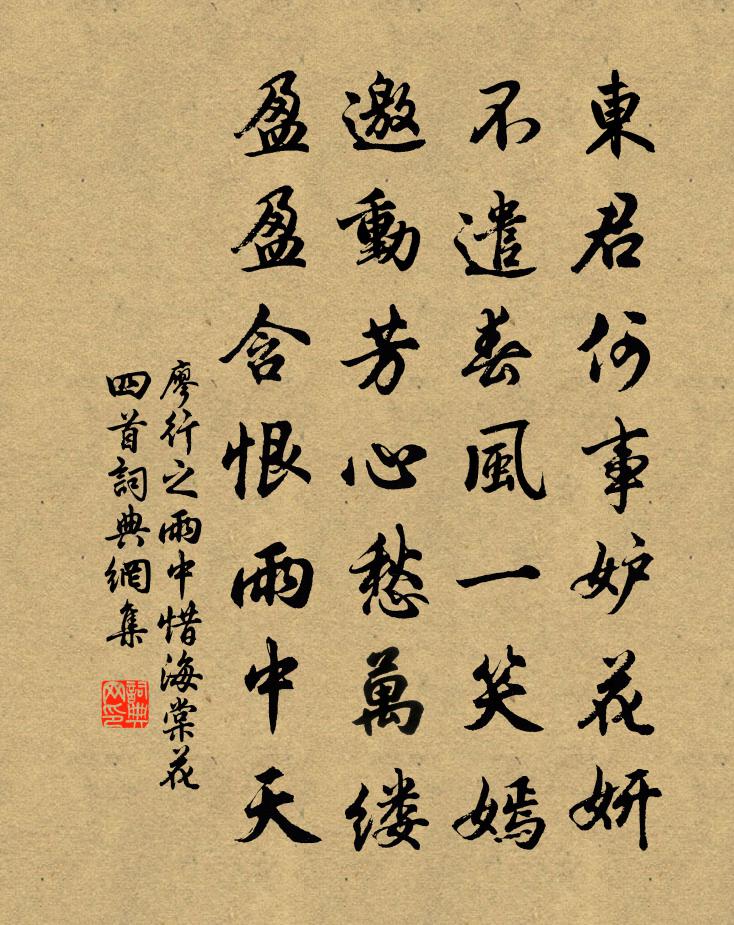 東君何事妒花妍
不遣春風一笑嫣
邀動芳心愁萬缕
盈盈含恨雨中天
廖行之雨中惜海棠花
四首詞典網集
詞典网印